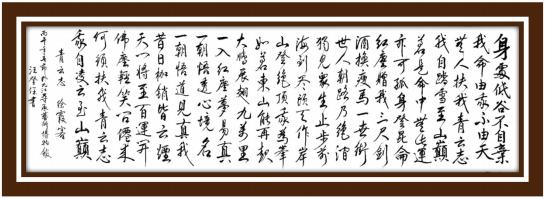 身處低谷不自棄
我命由我不由天
無人扶我青云志
我自踏雪至山巔
若是命中無此運
亦可孤身登昆侖
紅塵贈我三尺劍
酒換瘦馬一世街
世人朝路乃絕
獨見眾生止步前
海到盡頭天作岸
山登絕頂我為峯
如若東山能再起
大鵬展翅九萬里
一入紅塵夢易真
一朝悟道心境名
一朝悟道見真我
昔日枷鎖皆云煙
天門將至百運開
佛塵輕笑問僊來
何須扶我青云志
我自凌云至山巔
青云志 徐霞客
汪登書